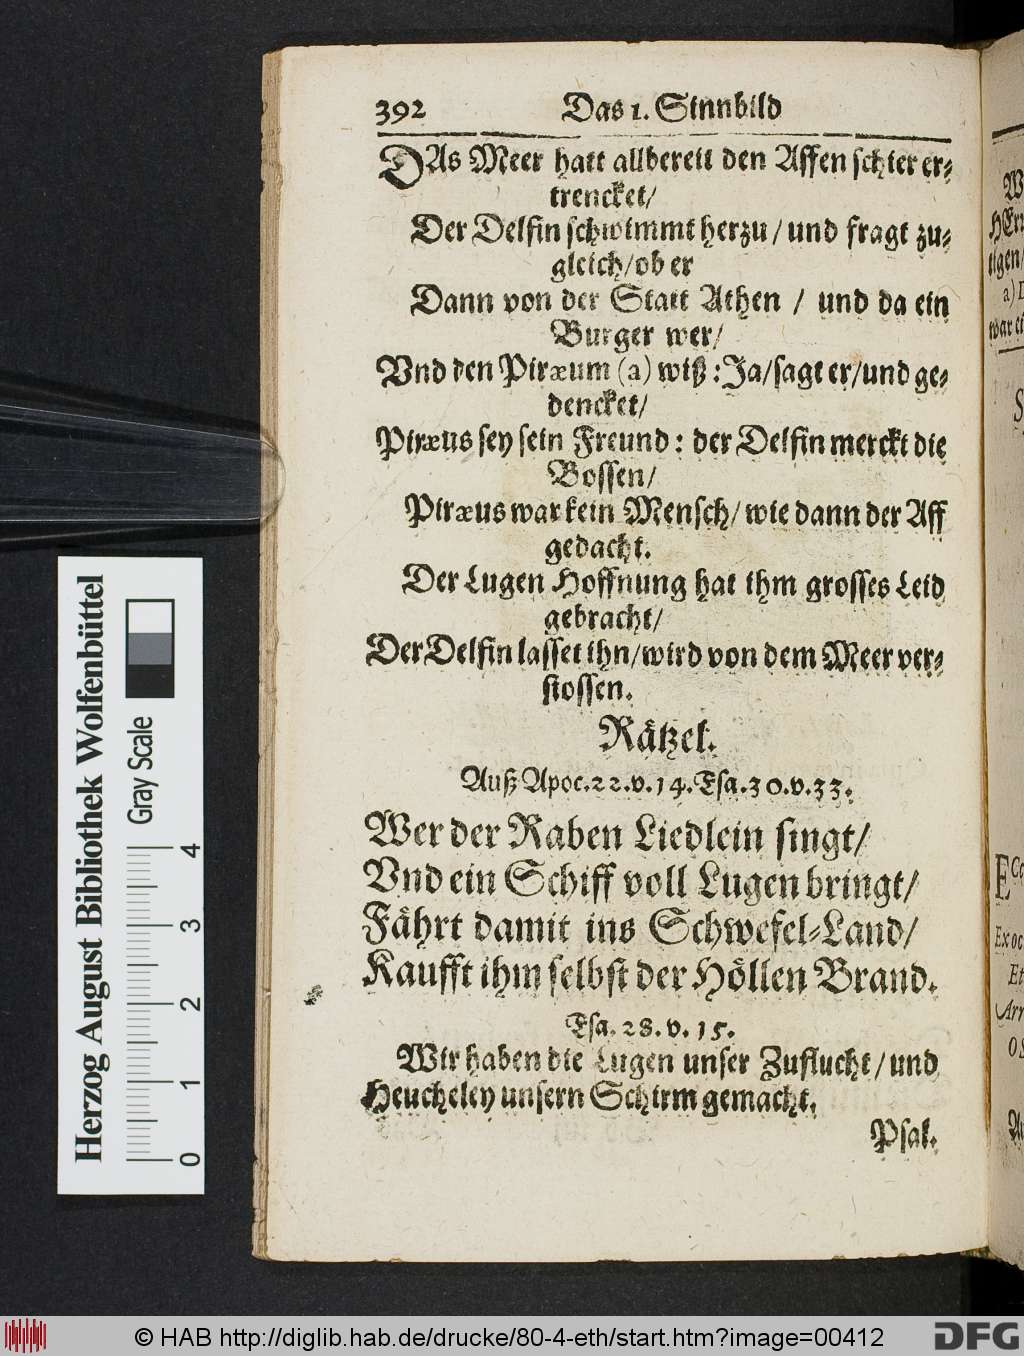 392 Das 1. Sinnbild
DAs Meer hatt allbereit den Affen schier er-
trencket/
Der Delfin schwimmt herzu / und fragt zu-
gleich/ob er
Dann von der Statt Athen / und da ein
Burger wer/
Vnd den Piræum (a) wiß: Ja/sagt er/und ge-
dencket/
Piræus sey sein Freund: der Delfin merckt die
Bossen/
Piræus war kein Mensch/ wie dann der Aff
gedacht.
Der Lugen Hoffnung hat ihm grosses Leid
gebracht/
Der Delfin lasset ihn/wird von dem Meer ver-
stossen.
Rätzel.
Auß Apoc. 22. v. 14. Esa. 30. v. 33.
Wer der Raben Liedlein singt/
Vnd ein Schiff voll Lugen bringt/
Fährt damit ins Schwefel-Land/
Kaufft ihm selbst der Höllen Brand.
Esa. 28. v. 15.
Wir haben die Lugen unser Zuflucht/ und
Heucheley unsern Schirm gemacht.
Psal.
Herzog August Bibliothek Wolfenbüttel
Gray Scale
0 1 2 3 4
© HAB http://diglib.hab.de/drucke/80-4-eth/start.htm?image=00412
DFG